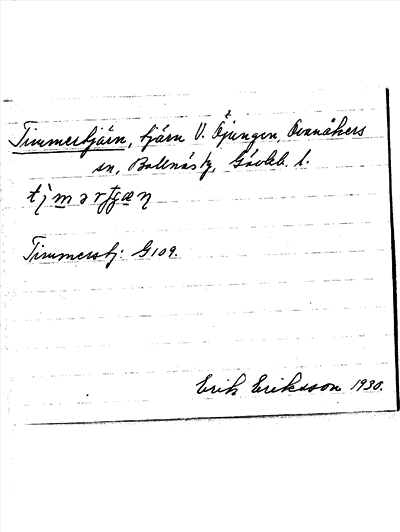 Timmertjärn, tjärn V. Öjungen, Ovanåkers
sn, Bollnäs tg, Gävleb. l.
Timmerstj. G109.
Erik Eriksson 1930.